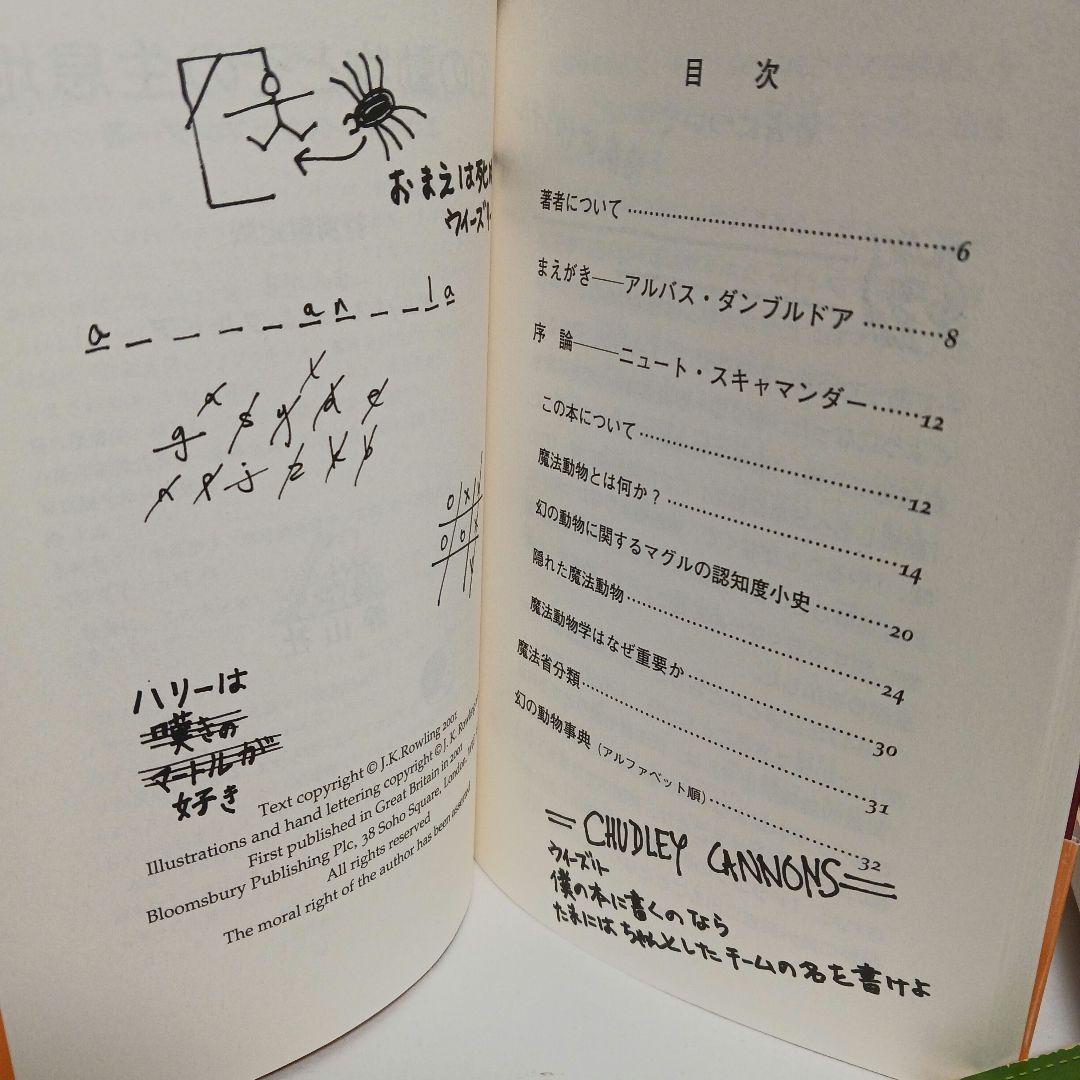 おまえは死
ウィーズリー
a _ _ _ _ a n _ _ l a
x x
g s y d e
j z k b
O X
O O X
ハリーは
嘆きの
マートルが
好き
Text copyright © J.K.Rowling 2001
Illustrations and hand lettering copyright © J. K. Rowling
First published in Great Britain in 2001
Bloomsbury Publishing Plc, 38 Soho Square, London,
All rights reserved
The moral right of the author has been asserted
目 次
著者について 6
まえがき──アルバス・ダンブルドア 8
序 論──ニュート・スキャマンダー 12
この本について 12
魔法動物とは何か? 14
幻の動物に関するマグルの認知度小史 20
隠れた魔法動物 24
魔法動物学はなぜ重要か 30
魔法省分類 31
幻の動物事典 (アルファベット順) 32
CHUDLEY CANNONS
ウィーズリー
僕の本に書くのなら
たまにはちゃんとしたチームの名を書けよ